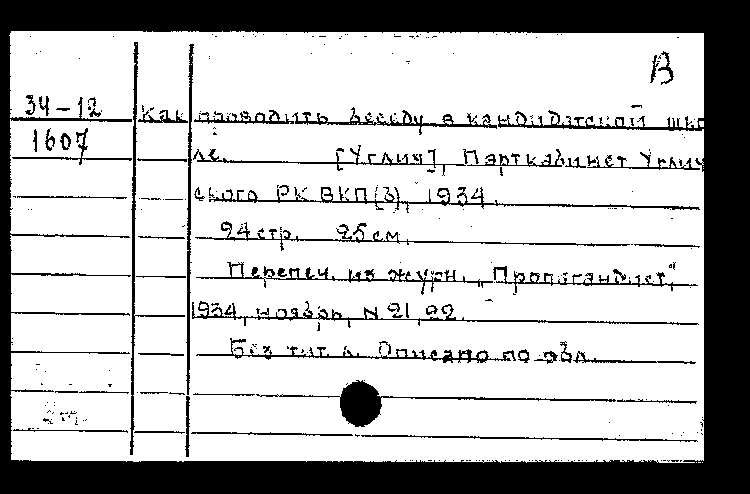 В
34-12
1607
Как проводить беседу в кандидатской шко
ле. [Углич], Парткабинет Углич
ского РК ВКП(б), 1934.
24 стр. 25 см.
Перепеч. из журн. „Пропагандист",
1934, ноябрь, N 21, 22.
Без тит. л. Описано по обл.
2 т.